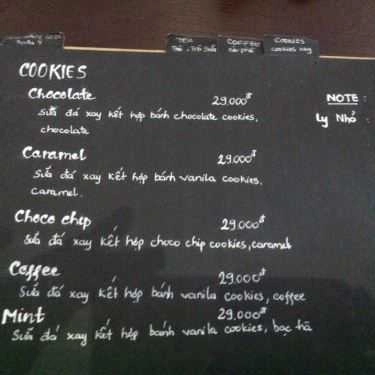 TEA
Trà, Trà Sữa
COFFEE
cà phê
COOKIES
cookies xay
COOKIES
Chocolate 29.000đ
Sữa đá xay kết hợp bánh chocolate cookies,
chocolate
NOTE :
Ly Nhỏ :
Caramel 29.000đ
Sữa đá xay kết hợp bánh vanila cookies,
caramel.
Choco chip 29.000đ
Sữa đá xay kết hợp choco chip cookies, caramel
Coffee 29.000đ
Sữa đá xay kết hợp bánh vanila cookies, coffee
Mint 29.000đ
Sữa đá xay kết hợp bánh vanila cookies, bạc hà